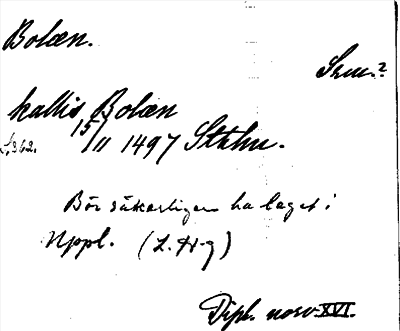 Bolæn.
Srm.?
hallis Bolæn
S. 362. 15/11 1497 Sthlm.
Bör säkerligen ha legat i
Uppl. (L. H-g)
Dipl. norv XVI.